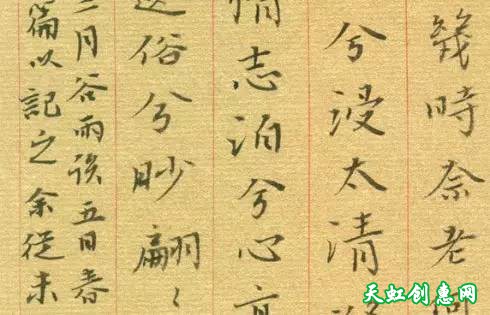 幾時奈老何
兮浸太清
情志泊兮心亭
俗兮眇翩々
月谷雨後五日春
篇以記之余從未
天虹创惠网